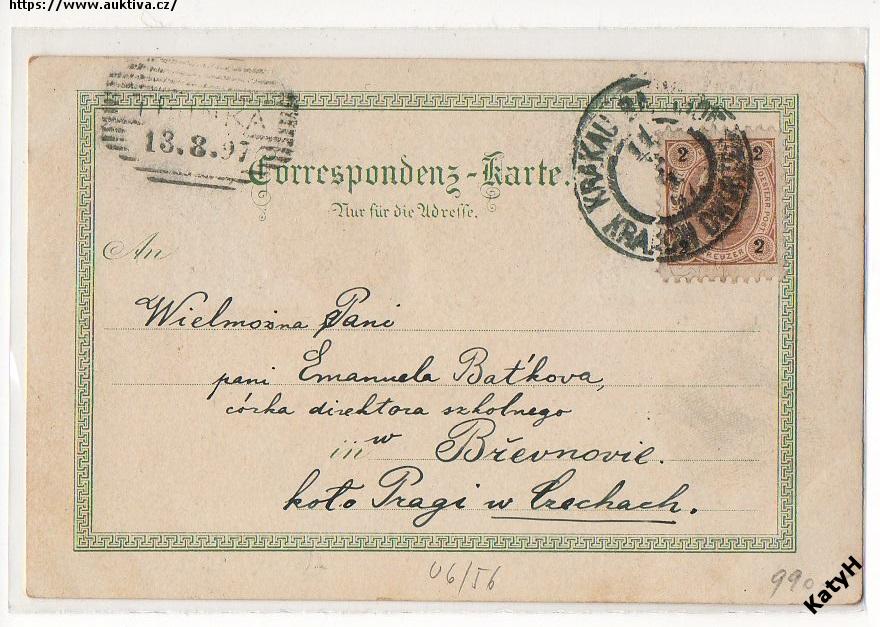 https://www.auktiva.cz/
13.8.97
Correspondenz-Karte.
Nur für die Adresse.
KRAKAU
KRAKÓW
2 2
OESTERR. POST
KREUZER
2 2
An
Wielmożna Pani
pani Emanuela Baťkova,
córka direktora szkolnego
in w Břevnovie.
koło Pragi w Czechach.
06/56
990
KatyH